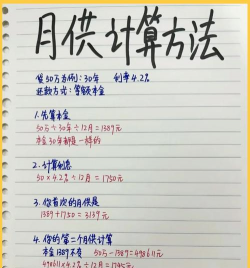 月供计算方法
贷50万为例：30年 利率4.2%
还款方式：等额本金
1.先算本金
50万÷30年÷12月=1389元
本金30年都是一样的
2.计算利息
50×4.2%÷12月=1750元
3.你首次的月供是
1389+1750=3139元
4.你的第二个月供计算
本金1389不变 50万-1389=498611元
498611×4.2%÷12月=1745元